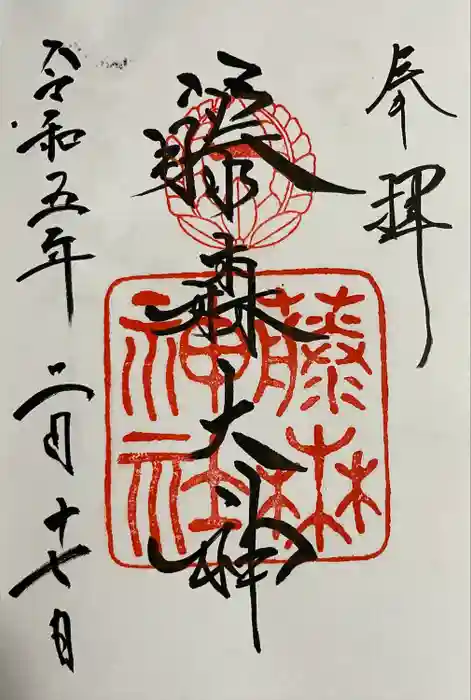 奉拝
藤森大神
藤森神社
令和五年 二月十七日